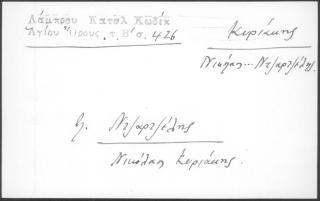 Λάμπρου Κατάλ Κώδικ
Ἁγίου Ὄρους, τ. Β' σ. 426
Κυριάκης
Νικόλας... Ντζαρτζέλης
Ντζαρτζέλης
Νικόλαος Κυριάκης.